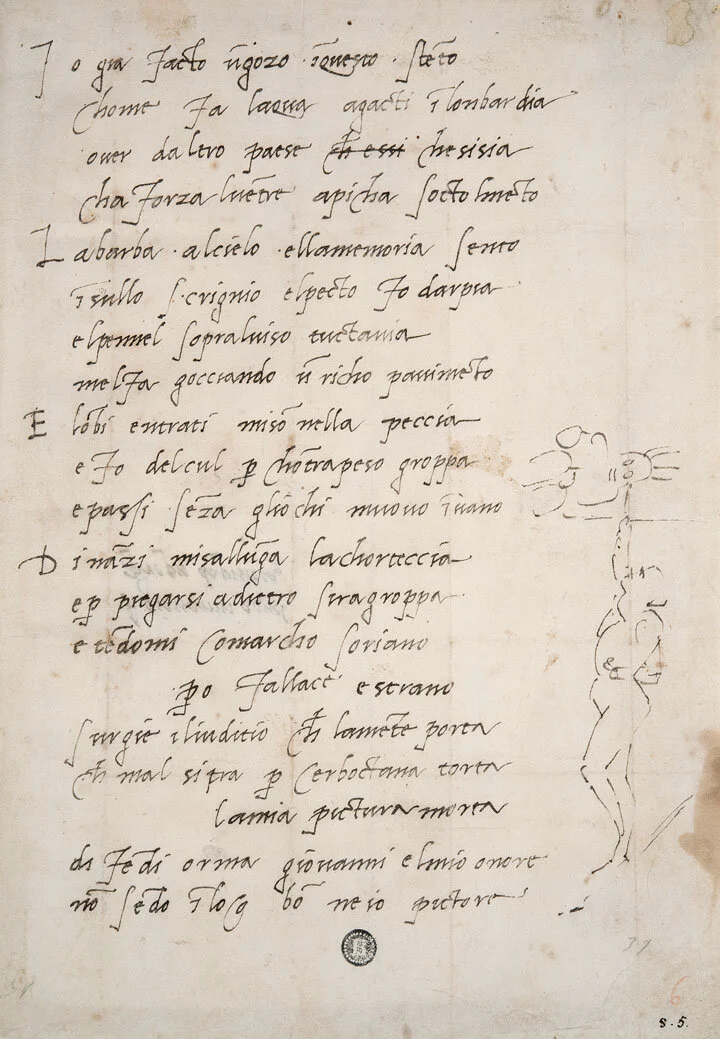 Io gia facto ūgozo īquesto stēto
chome fa laqua agacti ī lonbardia
over daltro paese ch̄ essi che sisia
cha forza luētre apicha socto lmēto
La barba · alcielo · ellamemoria sento
īsullo scrignio elpecto fo darpia
elpennel sopraluiso tuctavia
melfa gocciando ū richo pavimēto
E lōbi entrati misō nella peccia
e fo delcul p̄ chōtrapeso groppa
e passi sēza gliochi muovo īvano
Dināzi misallūga lachorteccia
e p̄ piegarsi adietro siragroppa
e tēdomi comarcho soriano
p̄o fallace e strano
surgie iliuditio ch̄ lamēte porta
ch̄ mal sipra p̄ cerboctana torta
lamia pictura morta
di fēdi orma giovanni elmio onore
nō sēdo ī log bō ne io pictore
s. 5.